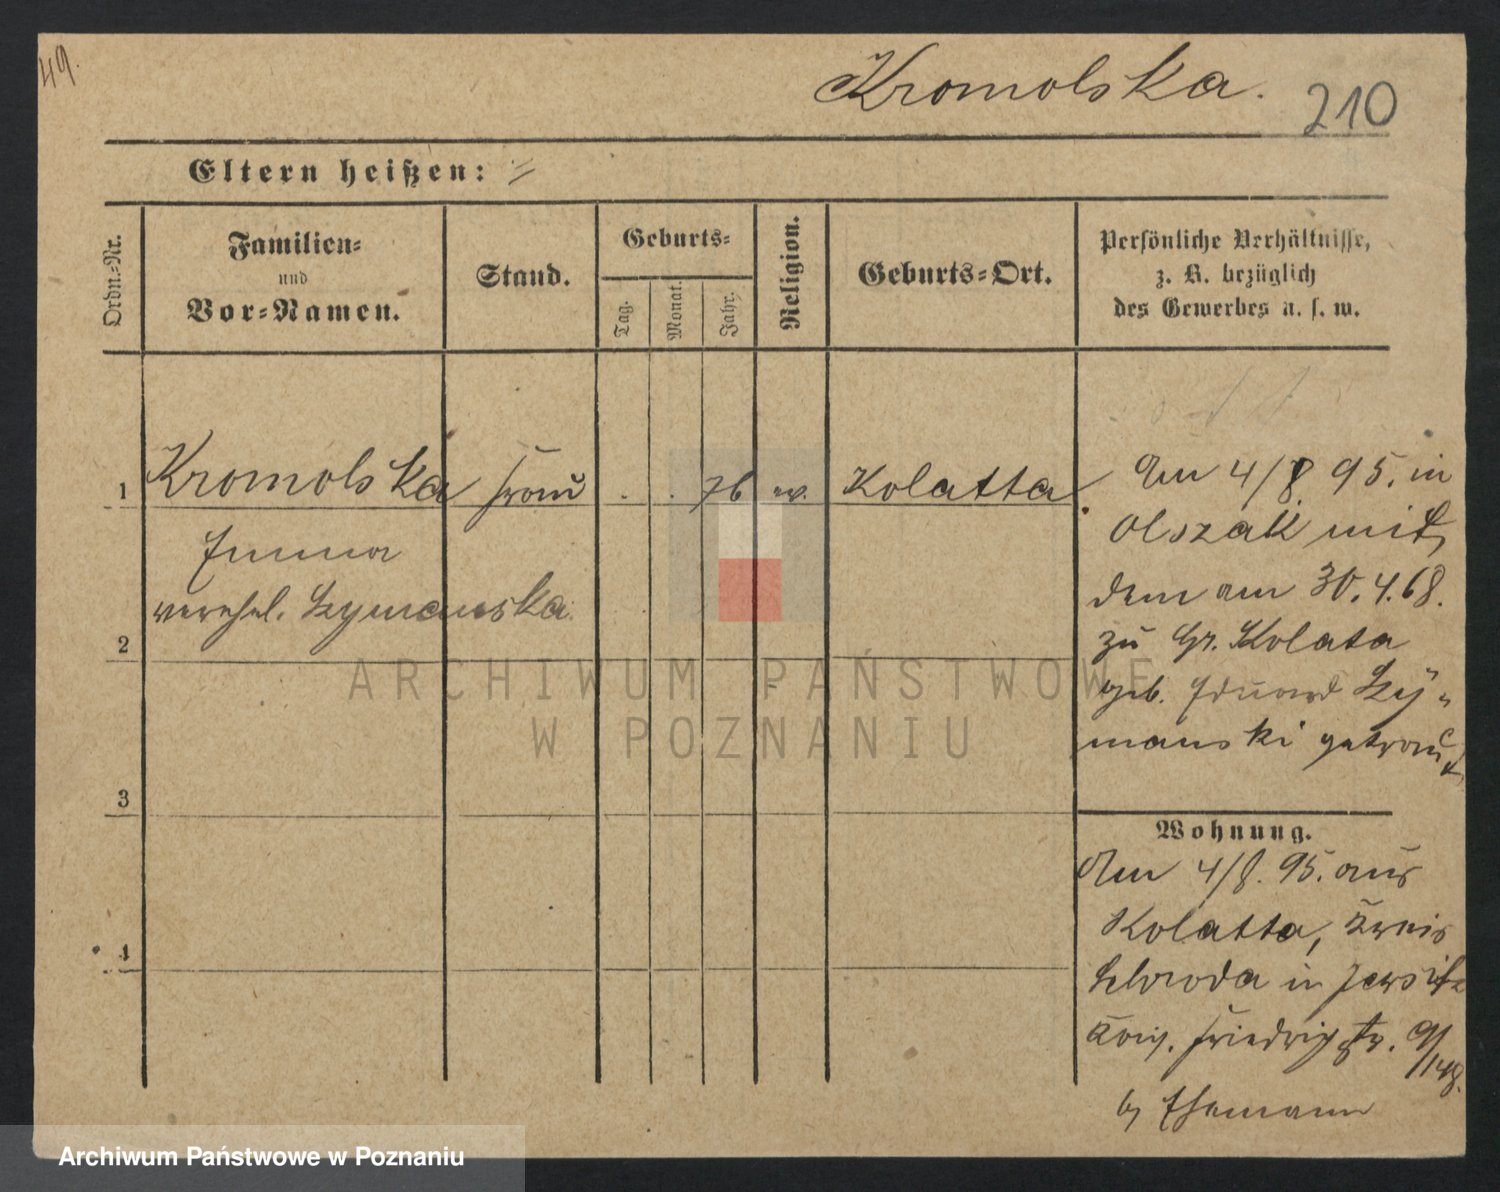 49.
Kromolska.
210
Eltern heißen:
Ordn.-Nr.
Familien-
und
Vor-Namen.
Stand.
Geburts-
Tag.
Monat.
Jahr.
Religion.
Geburts-Ort.
Persönliche Verhältnisse,
z. B. bezüglich
des Gewerbes u. s. w.
1 Kromolska Frau . . 76 ev. Kolatta
Emma
verehel. Szymanska
2
3
4
Am 4/8. 95. in
Olszak mit
dem am 30. 4. 68.
zu Gr. Kolata
geb. Eduard Szy-
manski getraut
Wohnung.
Am 4/8. 95. aus
Kolatta, Kreis
Schroda in Jersitz
König. Friedrichstr. 9/
148.
b/ Ehemann
ARCHIWUM PAŃSTWOWE
W POZNANIU
Archiwum Państwowe w Poznaniu